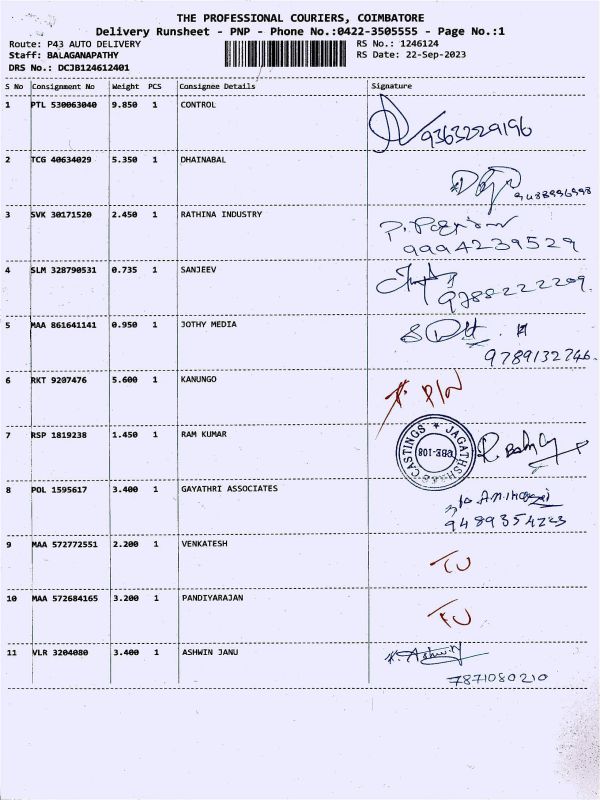 THE PROFESSIONAL COURIERS, COIMBATORE
Delivery Runsheet - PNP - Phone No.:0422-3505555 - Page No.:1
Route: P43 AUTO DELIVERY RS No.: 1246124
Staff: BALAGANAPATHY RS Date: 22-Sep-2023
DRS No.: DCJB124612401
S No Consignment No Weight PCS Consignee Details Signature
1 PTL 530063040 9.850 1 CONTROL
9363229196
2 TCG 40634029 5.350 1 DHAINABAL
3 SVK 30171520 2.450 1 RATHINA INDUSTRY
9994239529
4 SLM 328790531 0.735 1 SANJEEV
9788222209.
5 MAA 861641141 0.950 1 JOTHY MEDIA
9789132746.
6 RKT 9207476 5.600 1 KANUNGO
7 RSP 1819238 1.450 1 RAM KUMAR
CASTINGS * JAGATHSHREE
CBE-108
8 POL 1595617 3.400 1 GAYATHRI ASSOCIATES
9489354223
9 MAA 572772551 2.200 1 VENKATESH
10 MAA 572684165 3.200 1 PANDIYARAJAN
11 VLR 3204080 3.400 1 ASHWIN JANU
K. Ashwin
7871080210